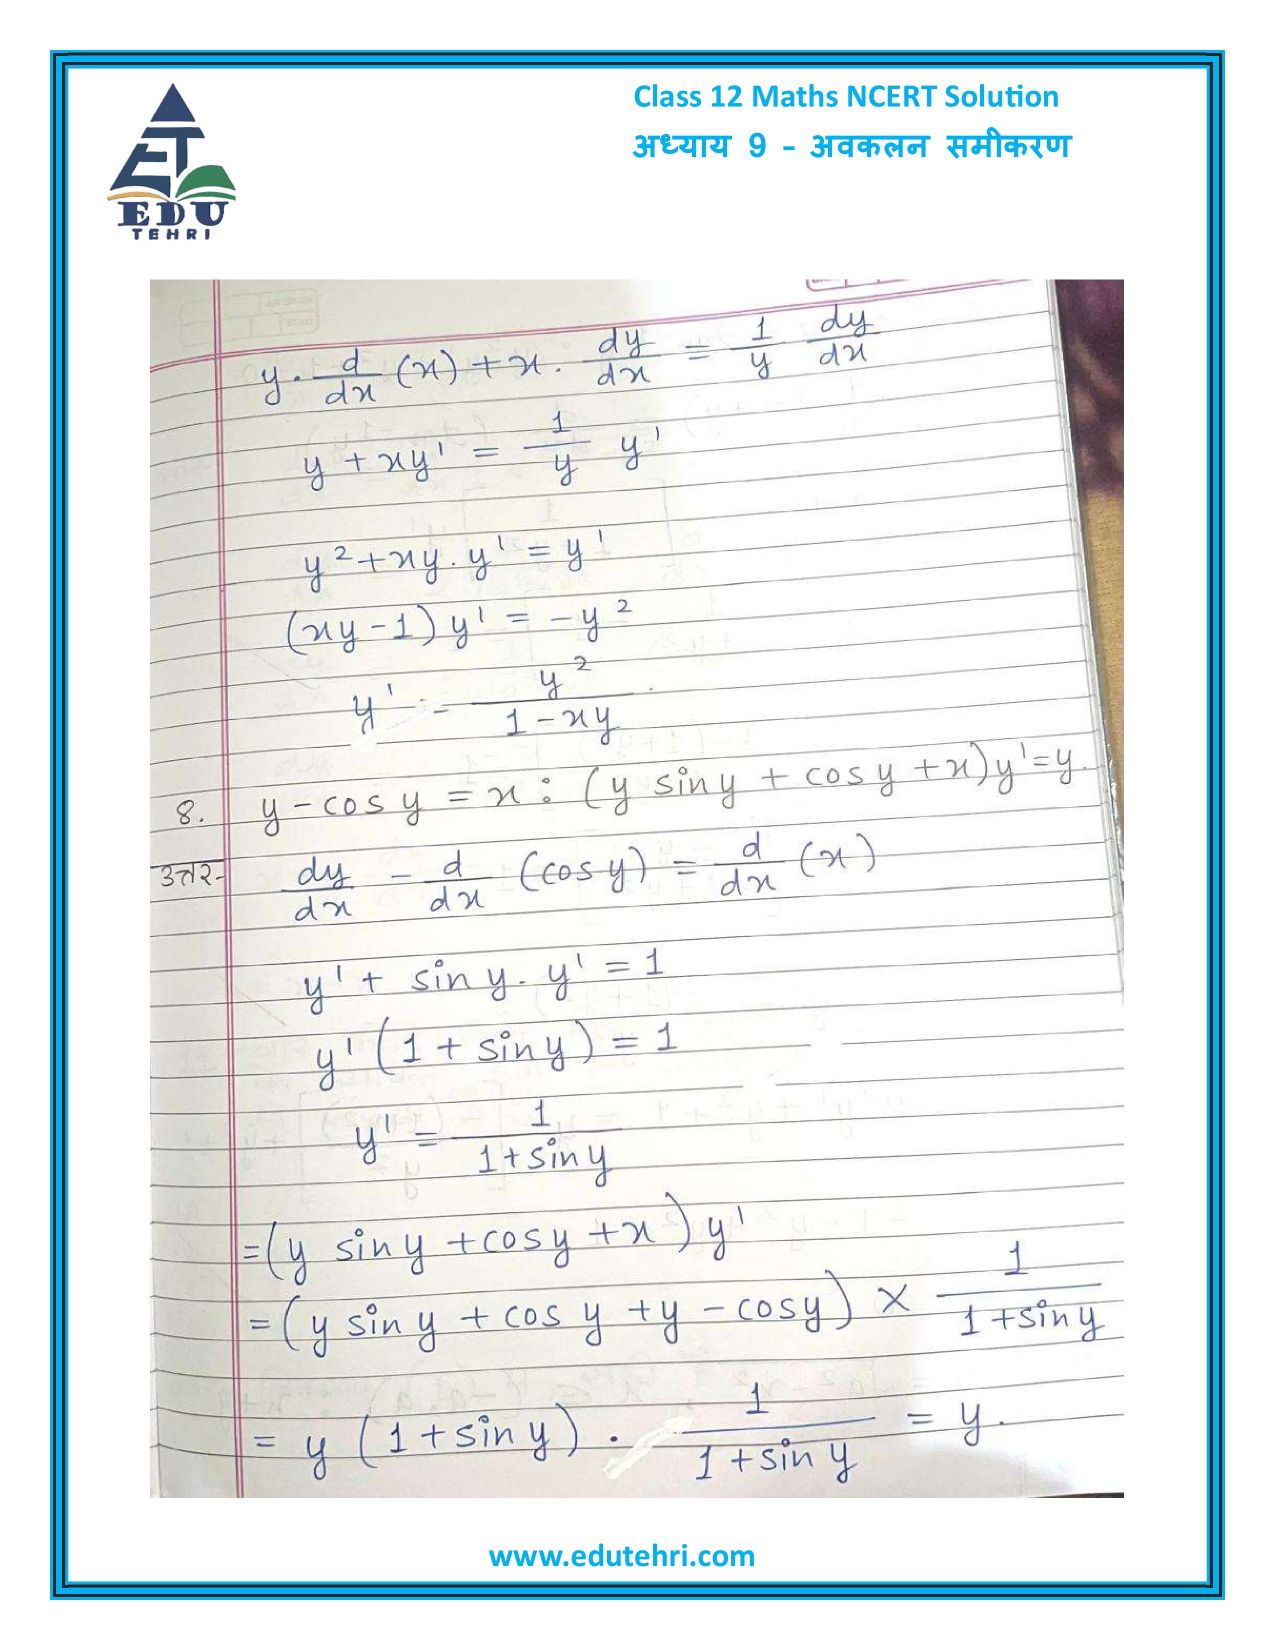 Class 12 Maths NCERT Solution
अध्याय 9 - अवकलन समीकरण
EDU
TEHRI
y · d/dx (x) + x · dy/dx = 1/y dy/dx
y + xy' = 1/y y'
y² + xy · y' = y'
(xy - 1) y' = -y²
y' = y²/(1 - xy)
8. y - cos y = x : (y sin y + cos y + x) y' = y.
उत्तर- dy/dx - d/dx (cos y) = d/dx (x)
y' + sin y · y' = 1
y' (1 + sin y) = 1
y' = 1/(1 + sin y)
= (y sin y + cos y + x) y'
= (y sin y + cos y + y - cos y) × 1/(1 + sin y)
= y (1 + sin y) · 1/(1 + sin y) = y.
www.edutehri.com